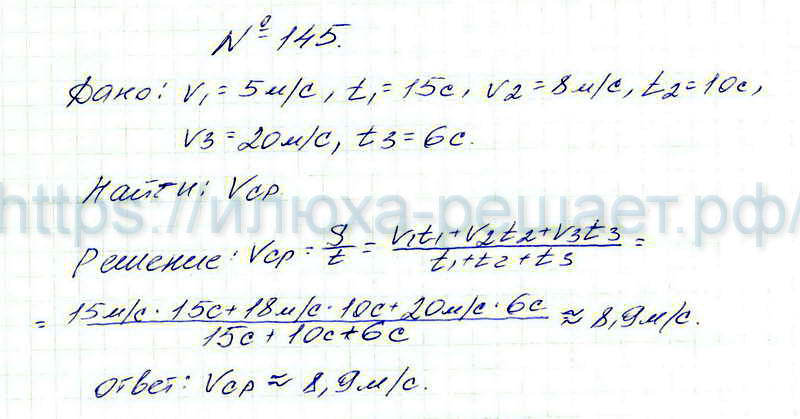 № 145.
Дано: v₁ = 5м/с, t₁ = 15с, v2 = 8м/с, t2 = 10с,
v3 = 20м/с, t3 = 6с.
Найти: Vср
https://илюха-решает.рф/
Решение: Vср = S/t = (v₁t₁+v2t2+v3t3)/(t₁+t2+t3) =
= (15м/с · 15с + 18м/с · 10с + 20м/с · 6с)/(15с + 10с + 6с) ≈ 8,9м/с.
ответ: Vср ≈ 8,9м/с.